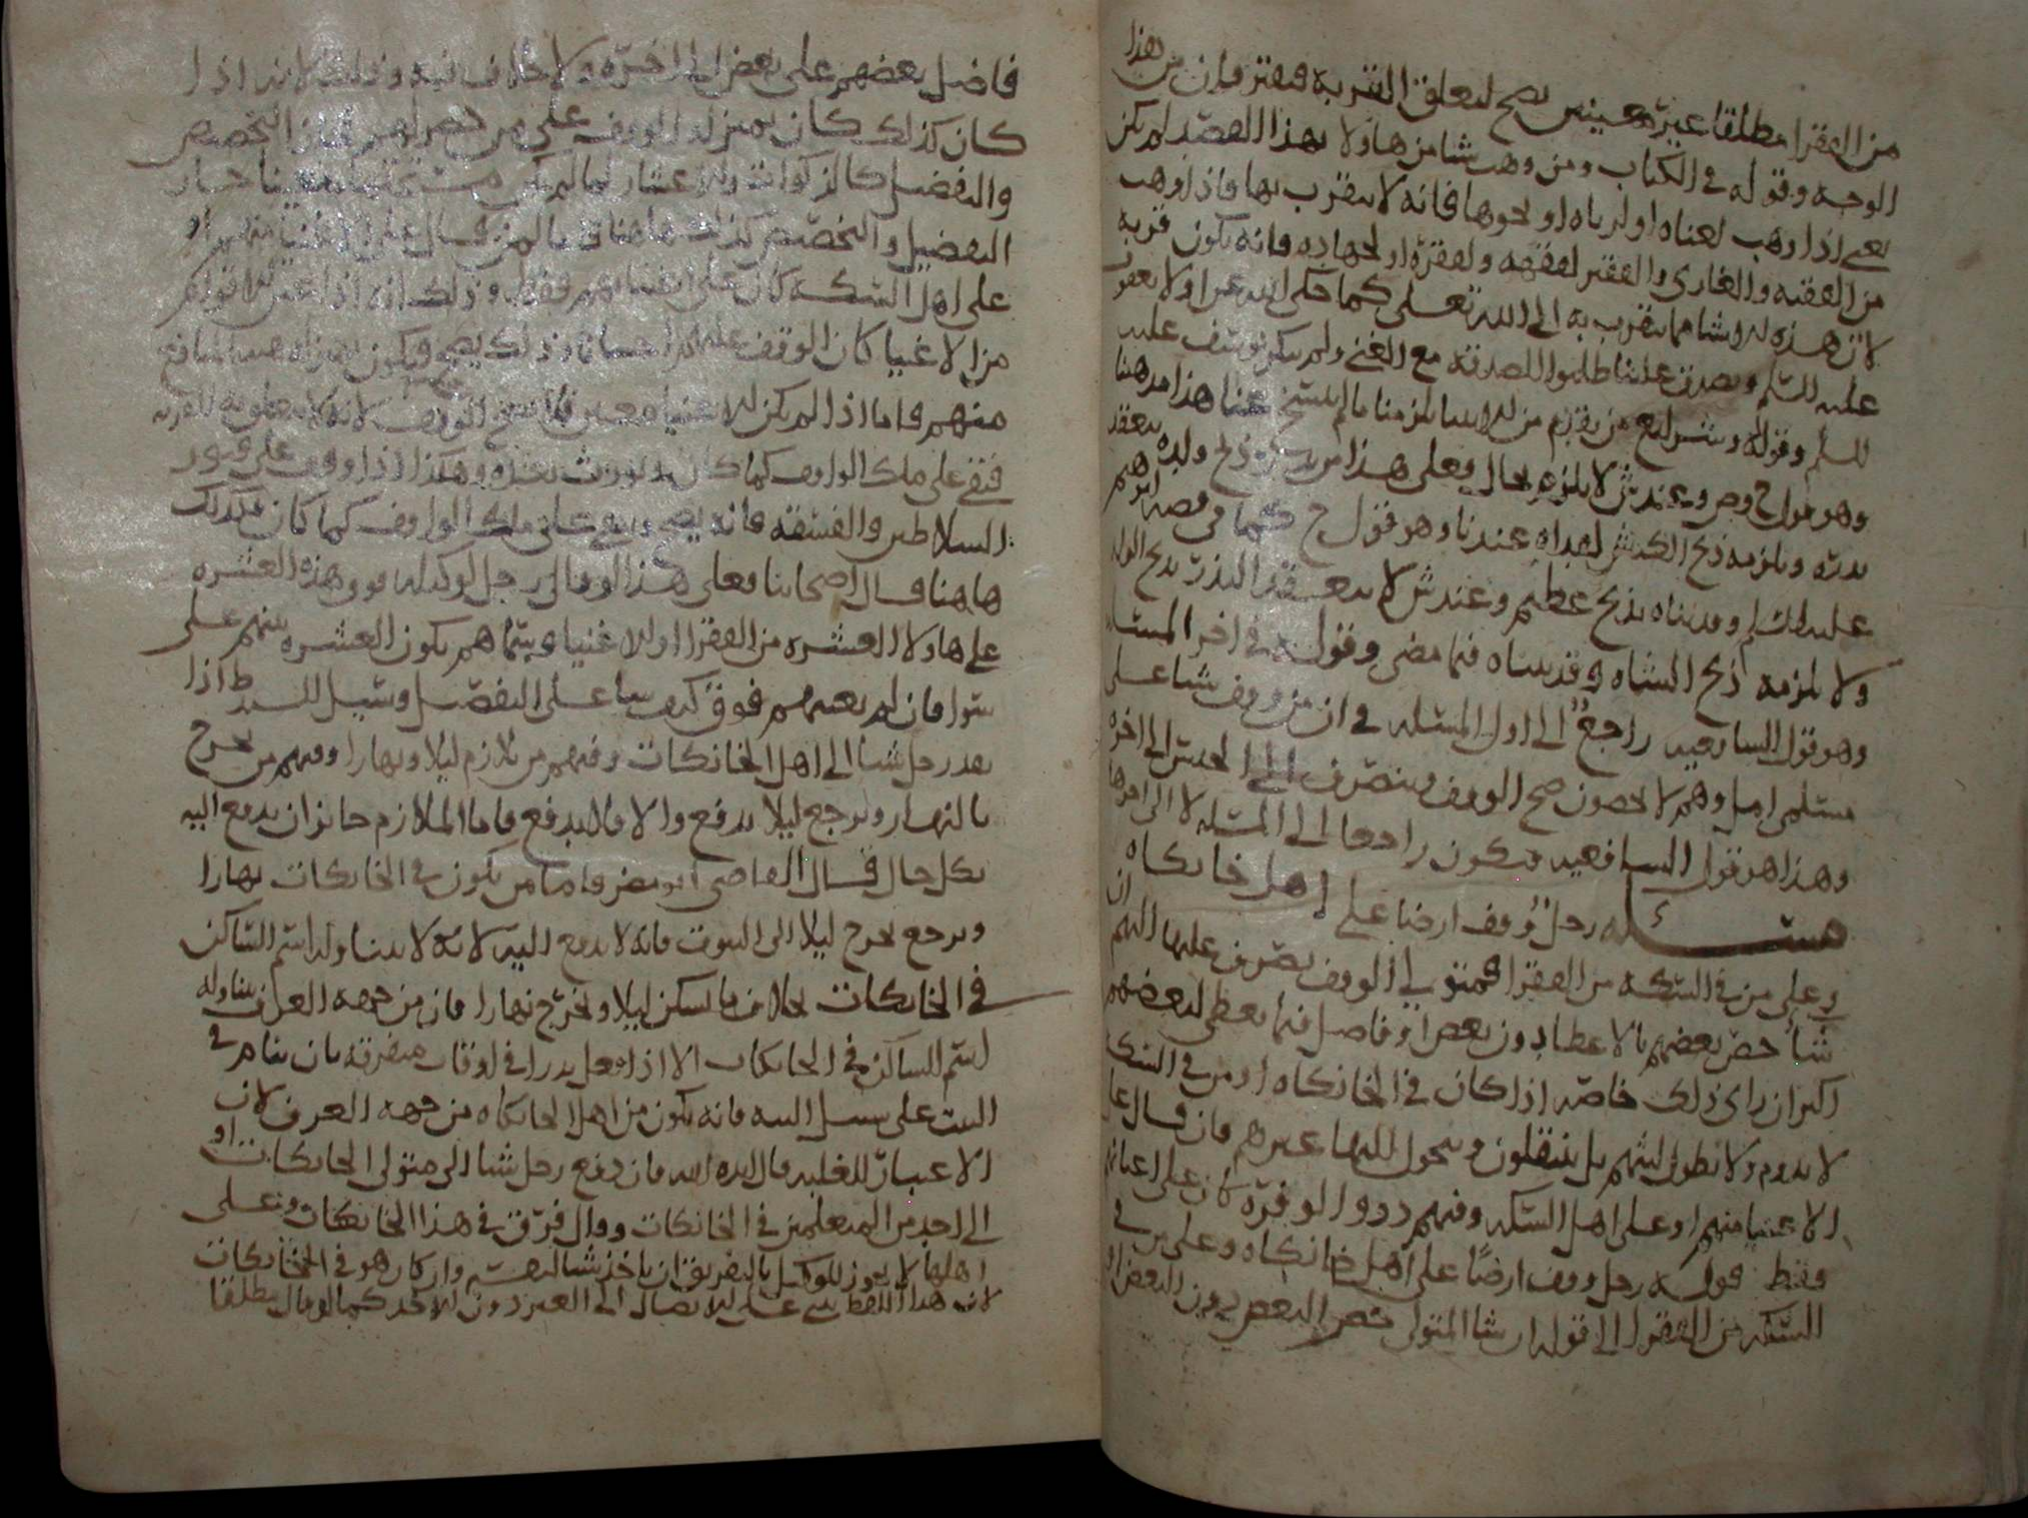 من الفقرا مطلقا غير معينين يصح لتعلق القربة ففترفان من هذا
الوجه وقوله في الكتاب ومن وهب شيا من هاولا بهذا القصد لم يكن
يعني اذا وهب لغناه او لرياه او نحوها فانه لا يتقرب بها فاذا وهب
من الفقيه والغازي والفقير لفقهه ولفقره او لجهاده فانه يكون قربه
لان هذه الاشيا مما يتقرب به الى الله تعلى كما حكى الله عن اولاد يعقوب
عليه السلم وتصدق علينا طلبوا للصدقه مع الغنى ولم يكن يوسف عليه
السلم وقوله وشرايع من تقدم من الانبيا يلزمنا ما لم ينسخ عنا هذا مذهبنا
وهو قول ح وص وعند ش لا يلزم بحال فعلى هذا من نذر بذبح ولده ينعقد
نذره ويلزمه ذبح الكبش لفداه عندنا وهو قول ح كما في قصه ابرهيم
عليه السلم وفديناه بذبح عظيم وعند ش لا ينعقد النذر بذبح الولد
ولا يلزمه ذبح الشاه وقد بيناه فيما مضى وقوله في اخر المسئله
وهو قول السافعيه راجع الى اول المسئله في ان من وقف شيا على
مسلمي امل وهم لا يحصون صح الوقف وينصرف الى الجنس الى اخره
وهذا هو قول السافعيه فيكون راجعا الى المسئله لا الى اخرها
مسئله رجل وقف ارضا على اهل خانكاه
وعلى من في السكه من الفقرا فمتولي الوقف يصرف غلتها اليهم ان
شا خص بعضهم بالاعطا دون بعض او فاضل فيما يعطي لبعضهم
اكثر ان راى ذلك خاصه اذا كان في الخانكاه او من في السكه
لا يدوم ولا تطول لبثهم بل ينتقلون ويتحول اليها غيرهم فان قال على
الاغنيا منهم او على اهل السكه وفيهم ذوو الوفرة كان على اغنيائهم
فقط قوله رجل وقف ارضا على اهل خانكاه وعلى من في
السكه من الفقرا الى قوله ان شا المتولي خص البعض دون البعض او
فاضل بعضهم على بعض الى اخره ولا خلاف فيه وذلك لانه اذا
كان كذلك كان بمنزله الوقف على من حصرلهم فان التخصيص
والتفضيل كالزكوات والاعشار لما لم يكن مستحقها معينا جاز
التفضيل والتخصيص كذلك هاهنا قيا لمن قال على الاغنيا منهم او
على اهل السكه كان على اغنيائهم فقط وذلك انه اذا عين لاقوام
من الاغنيا كان الوقف عليهم احسانا وذلك يصح ويكون بمنزله هبه المنافع
منهم فاما اذا لم يكن الاغنيا معينين فلا يصح الوقف لانه لا يتعلق به القربه
فبقي على ملك الواقف كما كان ويورث عنه وهكذا اذا وقف على قبور
السلاطين والفسقه فانه يصح ويبقى على ملك الواقف كما كان فكذلك
هاهنا قال اصحابنا فعلى هذا لو قال رجل لوكيله فرق هذه العشره
على هاولا العشره من الفقرا او الاغنيا وسماهم يكون العشره بينهم على
سوا فان لم يعينهم فرق كيف شا على التفضيل وسبيل السرط اذا
نذر رجل شيا الى اهل الخانكات وفيهم من يلازم ليلا ونهارا وفيهم من يخرج
بالنهار ويرجع ليلا يدفع والا فلا يدفع فاما الملازم جايز ان يدفع اليه
بكل حال قال القاضي ابو مضر فاما من يكون في الخانكات نهارا
ويرجع يخرج ليلا الى البيوت فانه لا يدفع اليه لانه لا يتناوله اسم الساكن
في الخانكات بخلاف ما يسكن ليلا ويخرج نهارا فان من جهه العرف يتناوله
اسم الساكن في الخانكات الا اذا فعل نذرا في اوقات متفرقه بان ينام في
البيت على سبيل البيه فانه يكون من اهل الخانكاه من جهه العرف لان
الاعتبار للغلبه قال ايده الله فان دفع رجل شيا الى متولي الخانكات او
الى احد من المتعلمين في الخانكات وقال فرق في هذا الخانكات وعلى
اهلها لا يجوز للوكيل بالتفريق ان ياخذ شيا لنفسه وان كان هو في الخانكات
لان هذا اللفظ يبنى على الايصال الى الغير دون الاخذ كما لو قال مطلقا